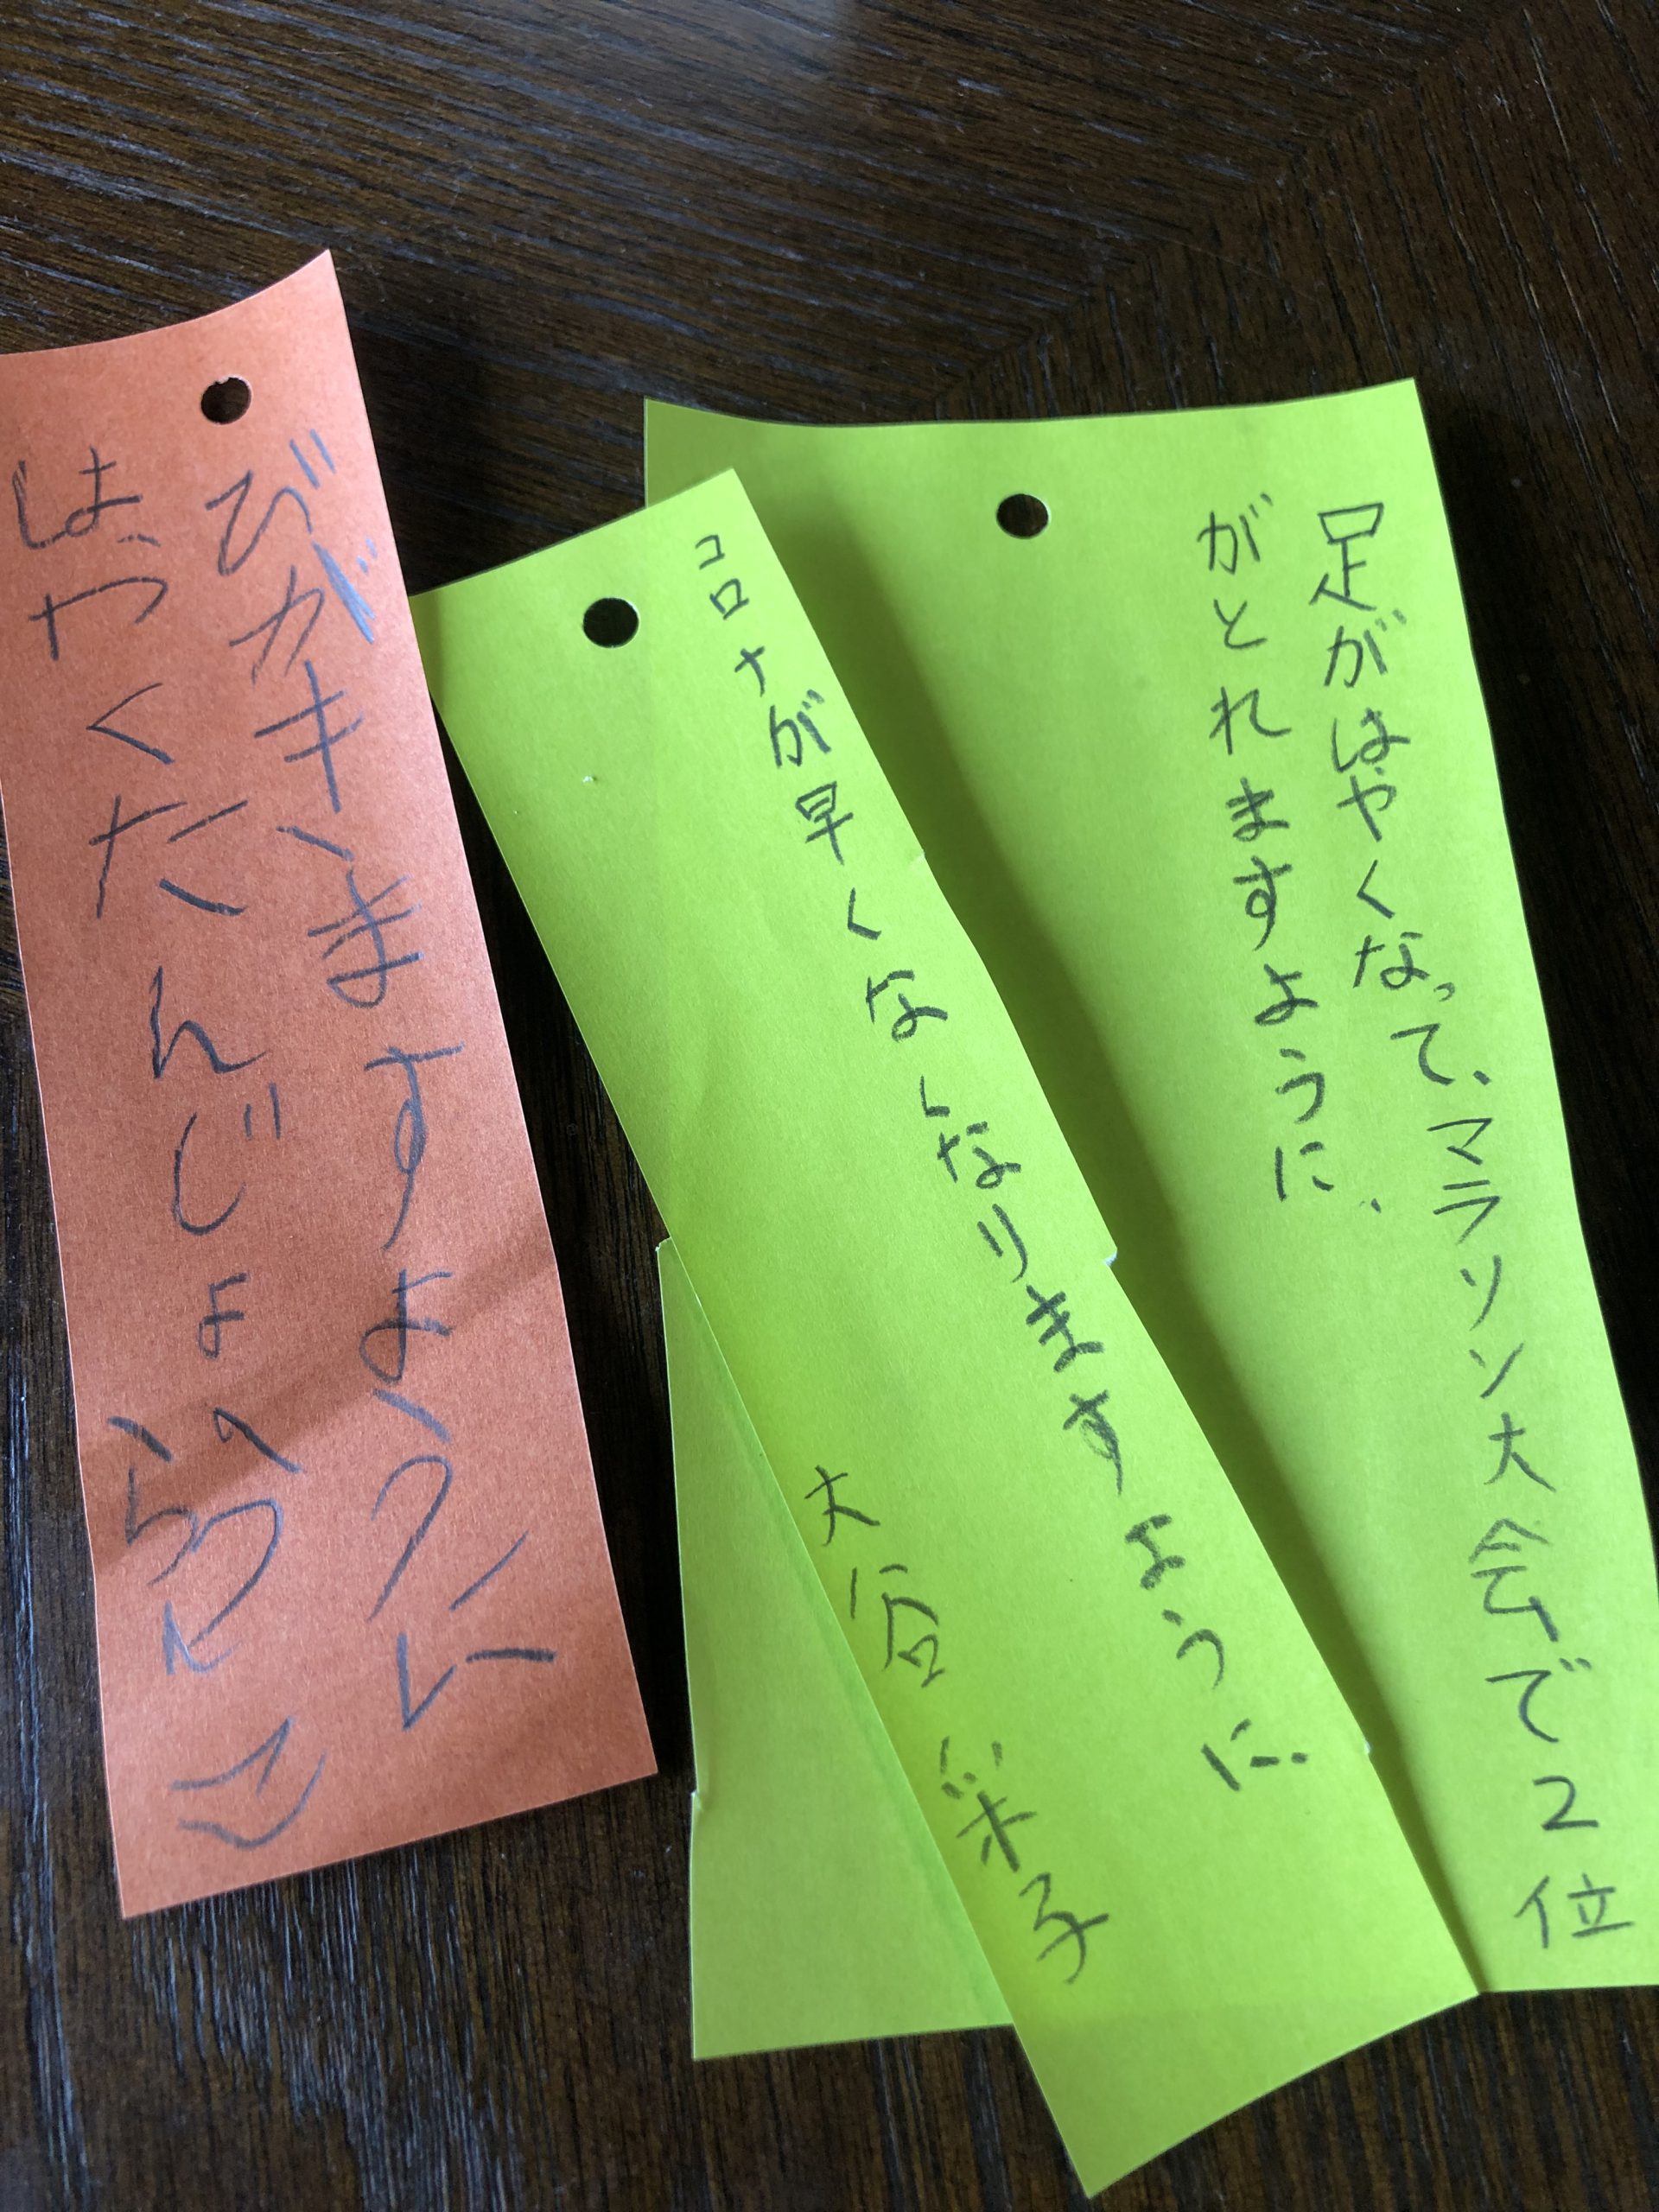 足がはやくなって、マラソン大会で2位
がとれますように、
コロナが早くなくなりますように。
大谷 采子
はやくたんじょう
びがきますように